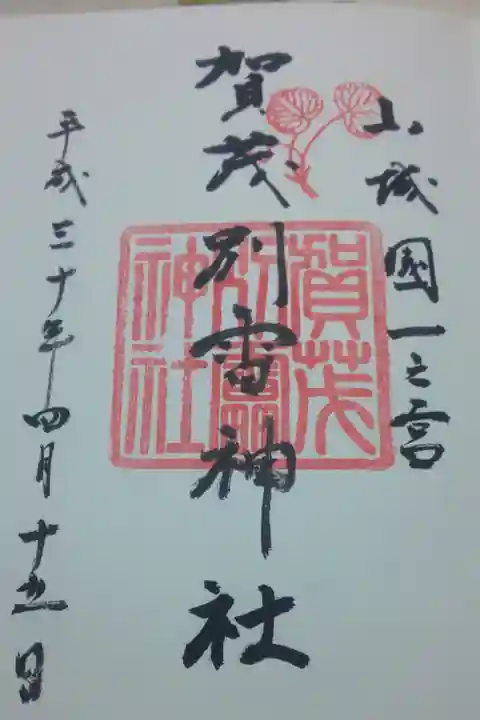 山城國一之宮
賀茂別雷神社
平成三十年四月十五日
賀茂
別雷
神社